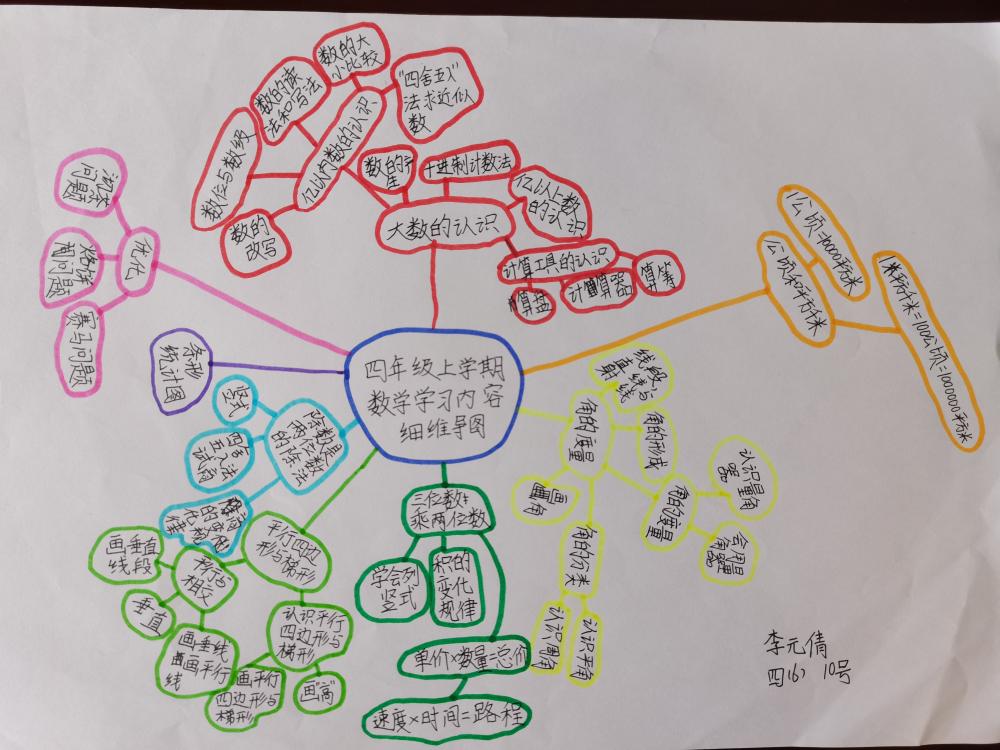 四年级上学期
数学学习内容
细维导图
大数的认识
亿以内数的认识
数的大
小比较
数的读
法和写法
"四舍五入"
法求近似
数
数位与数级
数的
改写
数的产
生
十进制计数法
亿以上数
的认识
计算工具的认识
算盘
计算器
算筹
公顷和平方千米
1公顷=10000平方米
1平方千米=100公顷=1000000平方米
角的度量
线段、
直线与
射线
角的形成
角的度量
认识量角
器
会用量
角器
画角
角的分类
认识周角
认识平角
三位数
乘两位数
学会列
竖式
积的
变化
规律
单价×数量=总价
速度×时间=路程
平行四边
形与梯形
平行与
相交
画垂直
线段
垂直
画垂线
画平行
线
认识平行
四边形与
梯形
画平行
四边形与
梯形
画"高"
除数是
两位数
的除法
竖式
四舍
五入法
试商
条形
统计图
优化
沏茶
问题
烙饼
问题
赛马问题
李元倩
四(6) 10号